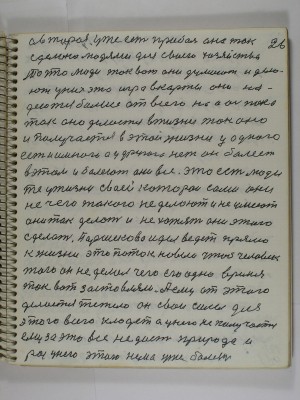 26
которая, уже есть прибоя она так
сделано людями для своего хозяйства
То то люди так вот они думают и дела-
ют у них это игра в карты они на-
деются больше от всего но а он пока
так оно делается в жизни так оно
и получается в этой жизни у одного
есть и много а у другого нет он болеет
в этом и болеют они все. Это есть люди
те у жизни своей которой сами они
не чего такого не делают и не умеют
они так делат и не хотят они этого
сделат. Паршеков идея ведет прямо
к жизни это поток нового у них человек
того он не делил чего его одно время
так вот заставляли. Ему от этого
делается тепло он свои силы для
этого всего кладет а у него не получается
ему за это все не дает природа и
раз у него этого нема уже болеет